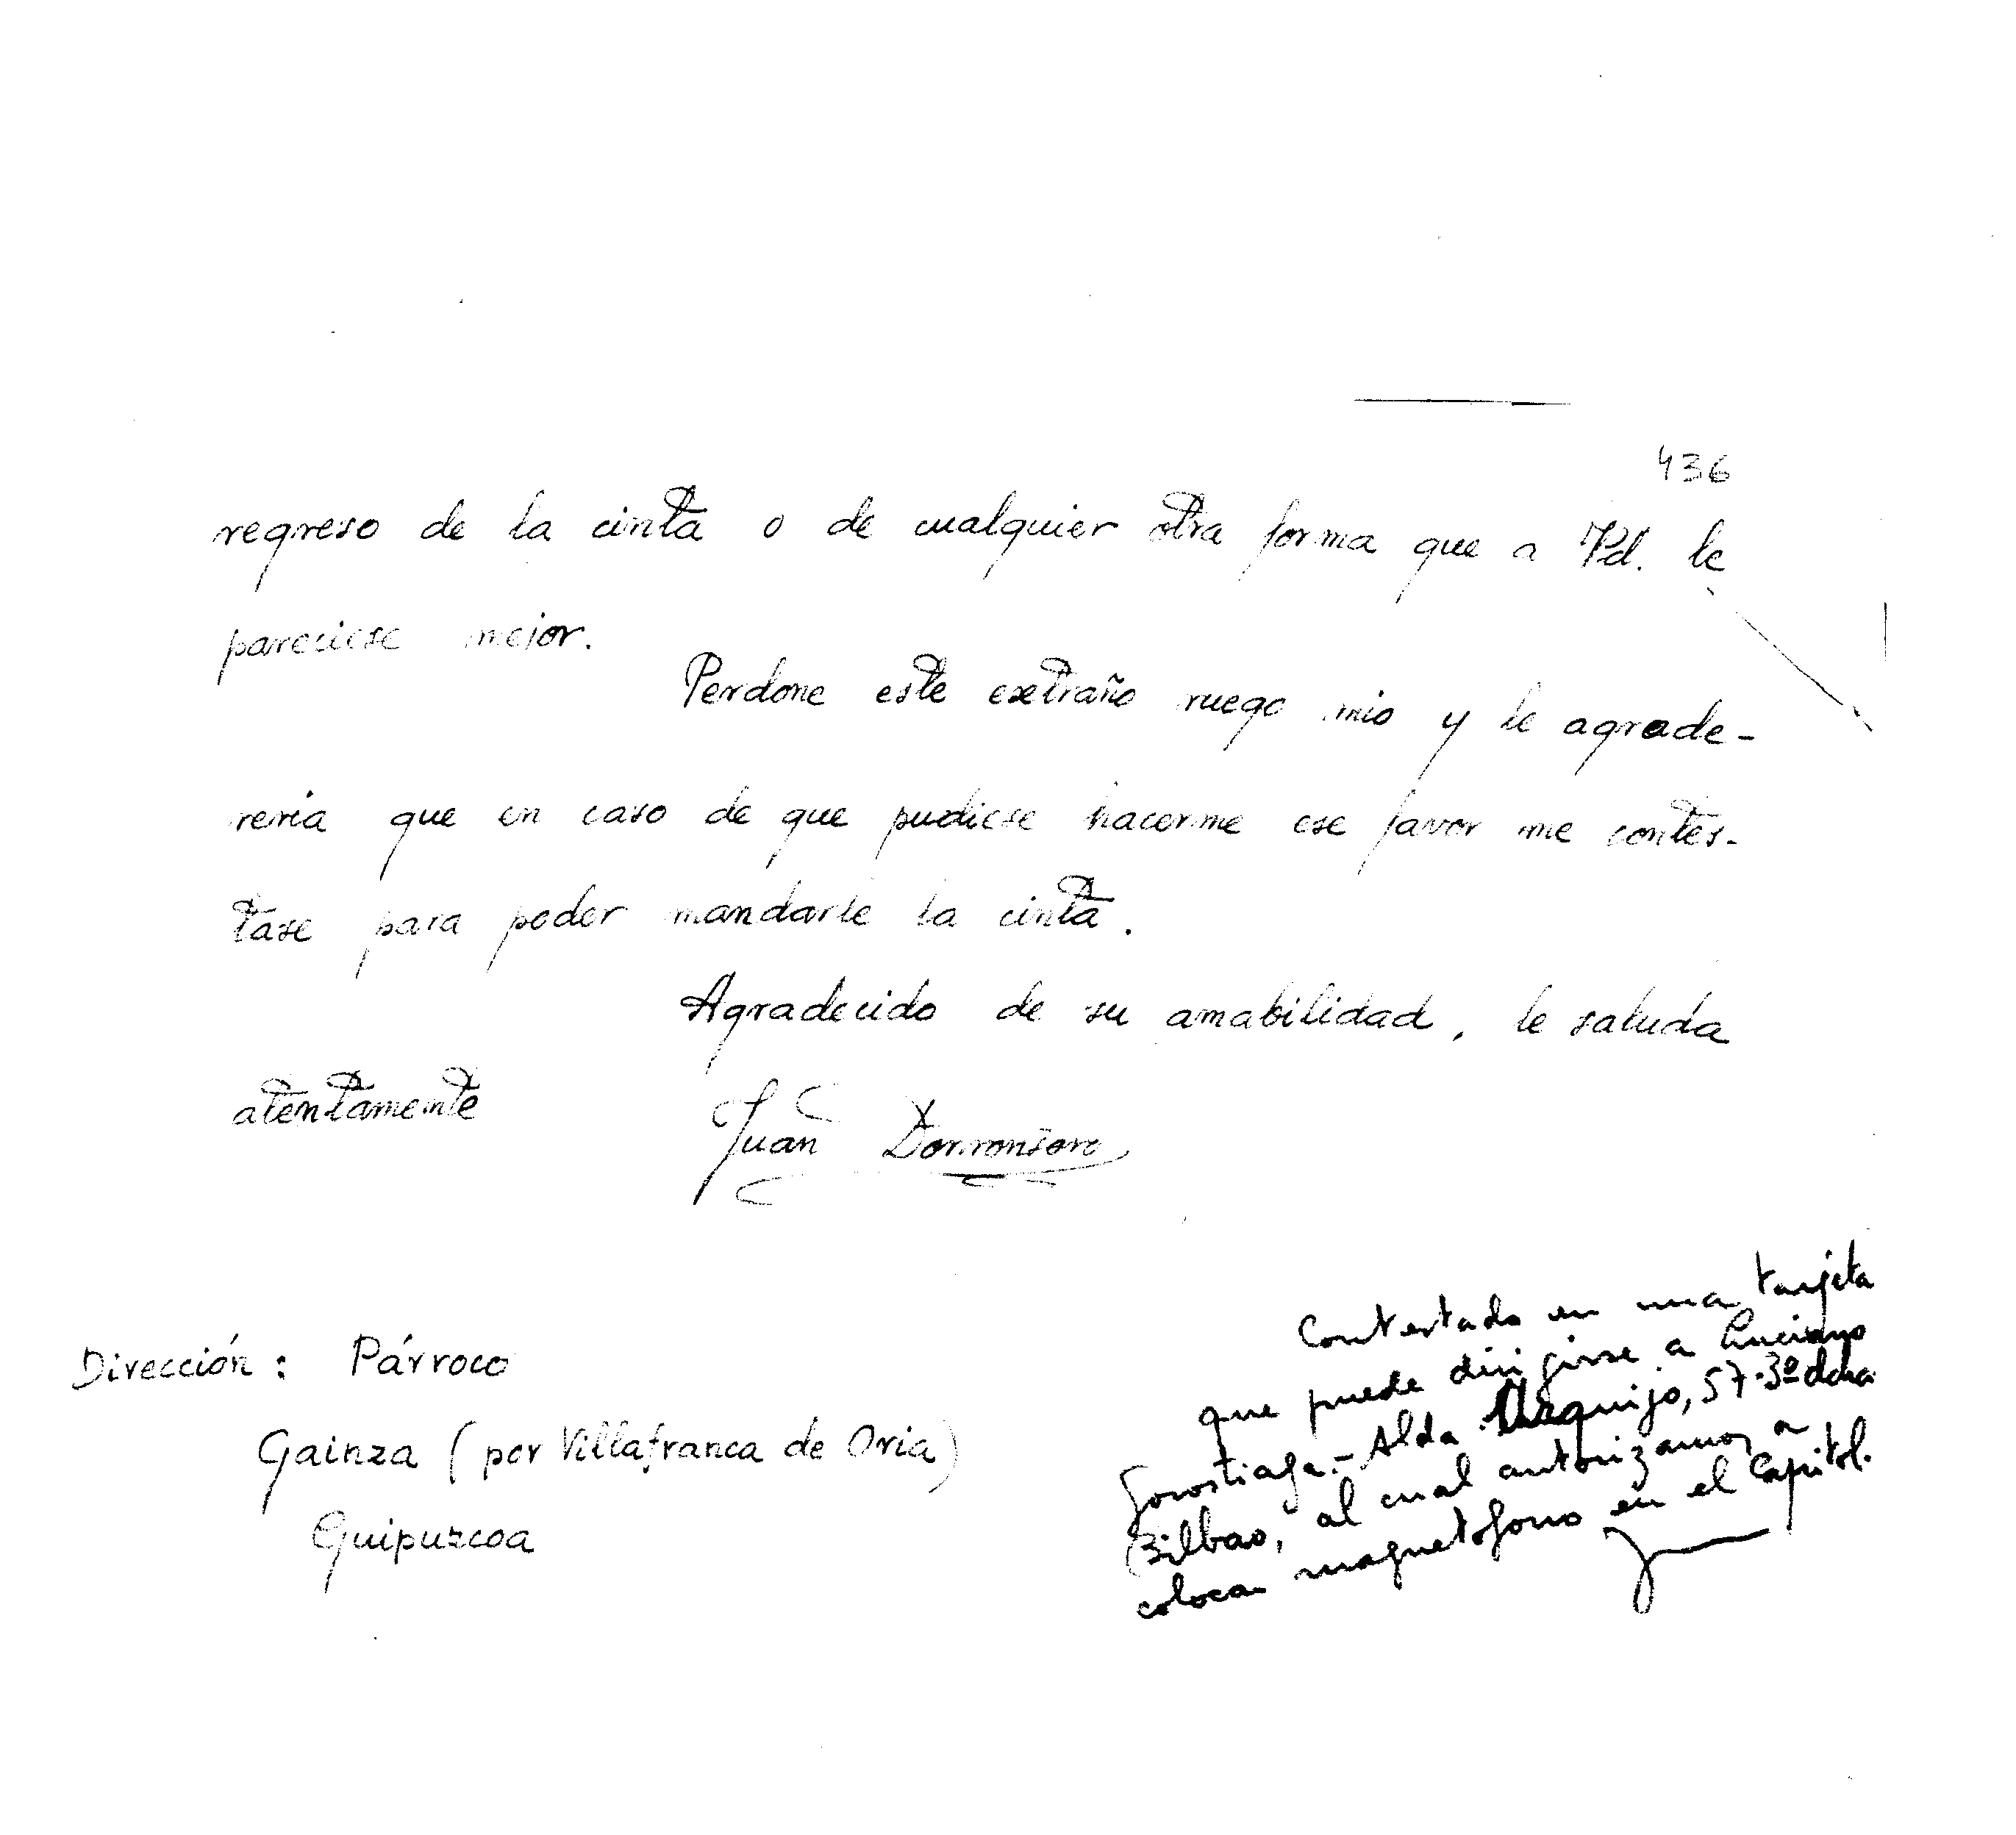 436
regreso de la cinta o de cualquier otra forma que a Vd. le
pareciese mejor.
Perdone este extraño ruego mio y le agrade-
ceria que en caso de que pudiese hacerme ese favor me contes-
tase para poder mandarle la cinta.
Agradecido de su amabilidad, le saluda
atentamente
Juan Dorronsoro
Dirección: Párroco
Gainza (por Villafranca de Oria)
Guipuzcoa
Contestado en una tarjeta
que puede dirigirse a Luciano
Gorostiaga.- Alda Urquijo, 57-3º dcha
Bilbao, al cual autorizamos a
colocar magnetofono en el Capitol.